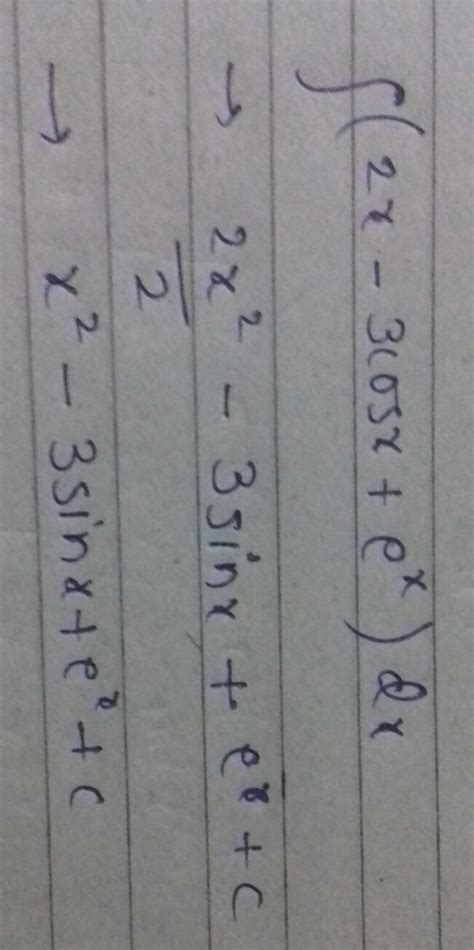 ∫(2x - 3cosx + e^x) dx
→ 2x²/2 - 3sinx + e^x + c
→ x² - 3sinx + e^x + c